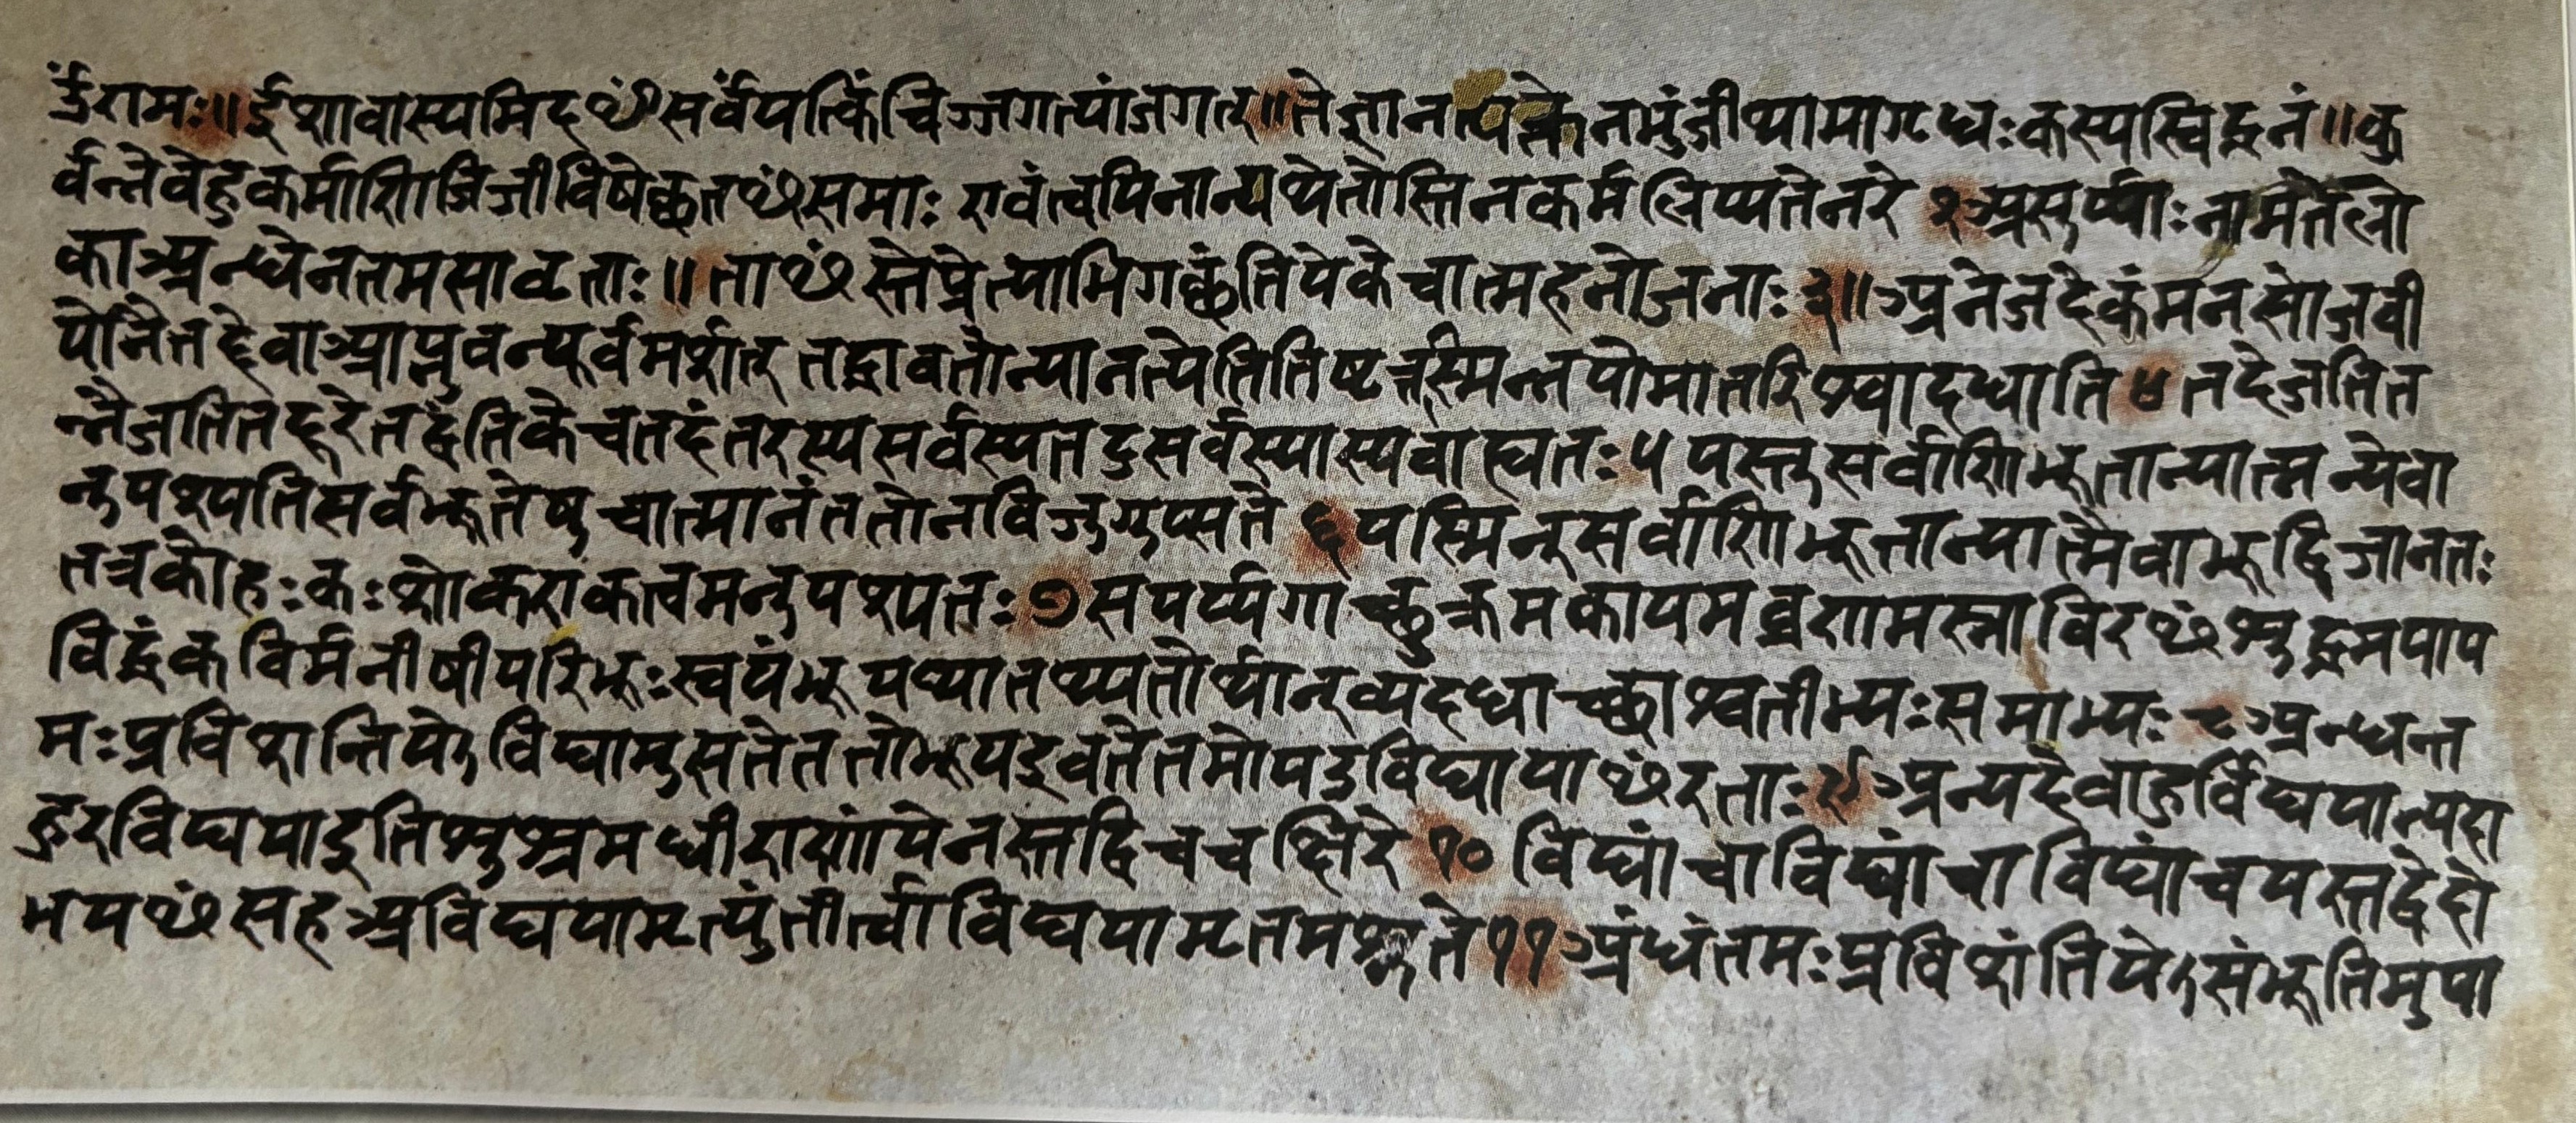 ॐरामः॥ईशावास्यमिदꣳसर्वंयत्किंचिज्जगत्यांजगत्॥तेज्ञानत्यक्तेनभुंजीथामागृधःकस्यस्विद्धनं॥कु
र्वन्नेवेहकर्माणिजिजीविषेच्छतꣳसमाः एवंत्वयिनान्यथेतोस्तिनकर्मलिप्यतेनरे २असुर्य्याःनामतेलो
काअन्धेनतमसावृताः॥ताꣳस्तेप्रेत्याभिगच्छंतियेकेचात्महनोजनाः३॥अनेजदेकंमनसोजवी
योनैतद्देवाआप्नुवन्पूर्वमर्शत् तद्धावतोन्यानत्येतितिष्टत्तस्मिन्नपोमातरिश्वादधाति४तदेजतित
न्नैजतितद्दूरेतद्वंतिकेचतदंतरस्यसर्वस्यतदुसर्वस्यास्यवाह्यतः५यस्तुसर्वाणिभूतान्यात्मन्येवा
नुपश्यतिसर्वभूतेषुचात्मानंततोनविजुगुप्सते६यस्मिन्सर्वाणिभूतान्यात्मैवाभूद्विजानतः
तत्रकोहःकःशोकएकत्वमनुपश्यतः७सपर्य्यगाच्छुक्रमकायमव्रणमस्नाविरꣳशुद्धमपाप
विद्धंकविर्मनीषीपरिभूःस्वयंभूयथातथ्यतोर्थान्व्यदधाच्छाश्वतीभ्यःसमाभ्यः८अन्धन्त
मःप्रविशन्तियेऽविद्यामुसतेततोभूयइवतेतमोयउविद्यायाꣳरताः९अन्यदेवाहुर्विद्ययान्यदा
हुरविद्ययाइतिशुश्रमधीराणांयेनस्तद्विचचक्षिरे१०विद्यांचाविद्यांचाविद्यांचयस्तद्वेदो
भयꣳसहअविद्ययामृत्युंतीर्त्वाविद्ययामृतमश्नुते११अंधंतमःप्रविशंतियेऽसंभूतिमुपा